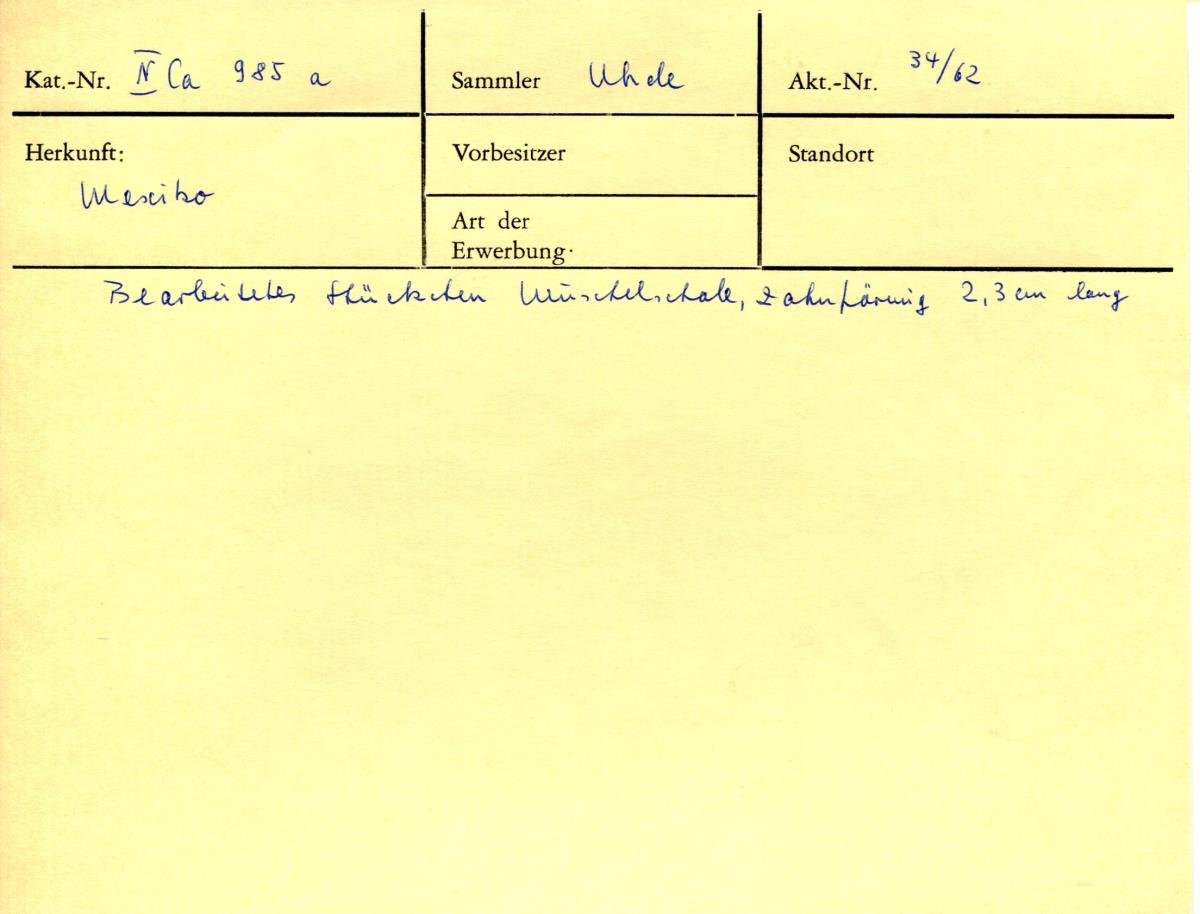 Kat.-Nr. IV Ca 985 a
Sammler Uhde
Akt.-Nr. 34/62
Herkunft:
Mexiko
Vorbesitzer
Art der
Erwerbung·
Standort
Bearbeitetes Stückchen Muschelschale, zahnförmig 2,3 cm lang